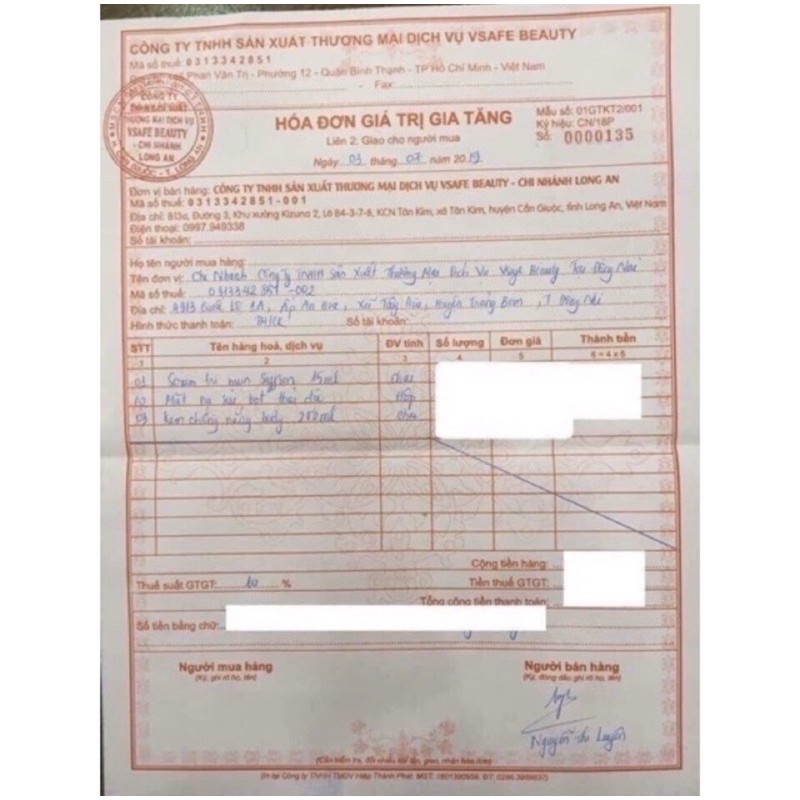 CÔNG TY TNHH SẢN XUẤT THƯƠNG MẠI DỊCH VỤ VSAFE BEAUTY
Mã số thuế: 0313342851
Phan Văn Trị - Phường 12 - Quận Bình Thạnh - TP Hồ Chí Minh - Việt Nam
- Fax:
CÔNG TY
TNHH SẢN XUẤT
THƯƠNG MẠI DỊCH VỤ
VSAFE BEAUTY
- CHI NHÁNH
LONG AN
HÓA ĐƠN GIÁ TRỊ GIA TĂNG
Liên 2: Giao cho người mua
Ngày 03 tháng 07 năm 2019
Mẫu số: 01GTKT2/001
Ký hiệu: CN/18P
Số: 0000135
Đơn vị bán hàng: CÔNG TY TNHH SẢN XUẤT THƯƠNG MẠI DỊCH VỤ VSAFE BEAUTY - CHI NHÁNH LONG AN
Mã số thuế: 0313342851-001
Địa chỉ: Đường 3, Khu xưởng Kizuna 2, Lô B4-3-7-8, KCN Tân Kim, xã Tân Kim, huyện Cần Giuộc, tỉnh Long An, Việt Nam
Điện thoại: 0997.949338
Số tài khoản:
Họ tên người mua hàng:
Tên đơn vị: Chi Nhánh Công Ty TNHH Sản Xuất Thương Mại Dịch Vụ Vsafe Beauty Tại Đồng Nai
Mã số thuế: 0313342851-002
Địa chỉ: Quốc Lộ 1A, Ấp An Hòa, Xã Tây Hòa, Huyện Trảng Bom, T Đồng Nai
Hình thức thanh toán: TM/CK Số tài khoản:
STT Tên hàng hoá, dịch vụ ĐV tính Số lượng Đơn giá Thành tiền
1 2 3 4 5 6 = 4 x 5
01 Serum trị mụn 15ml chai
02 Mặt nạ sủi bọt thải độc Hộp
03 Kem chống nắng body 200ml chai
Cộng tiền hàng:
Thuế suất GTGT: 10 % Tiền thuế GTGT:
Tổng cộng tiền thanh toán:
Số tiền bằng chữ:
Người mua hàng Người bán hàng
(Ký, ghi rõ họ, tên) (Ký, đóng dấu, ghi rõ họ, tên)
Nguyễn Thị Luyến
(Cần kiểm tra, đối chiếu khi lập, giao, nhận hóa đơn)
(In tại Công ty TNHH TMDV Hiệp Thành Phát.